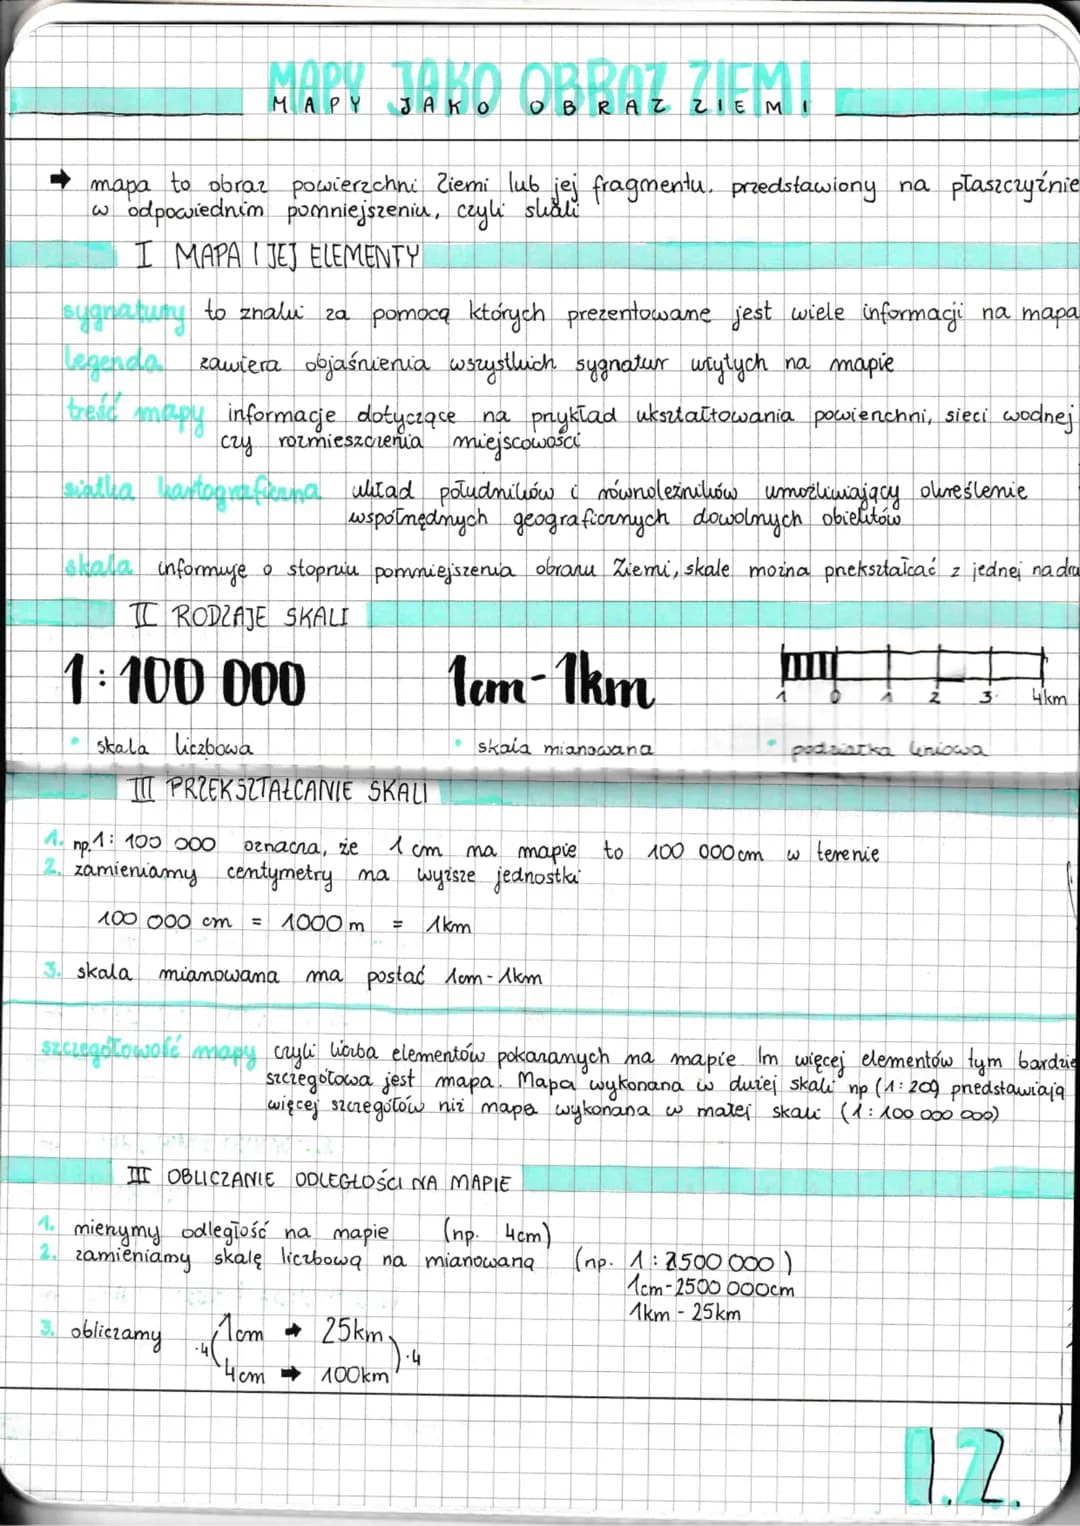 MAPY JAKO OBRAZ ZIEMI
MAPY JAKO OBRAZ ZIEMI
→ mapa to obraz powierzchni Ziemi lub jej fragmentu, przedstawiony na płaszczyźnie
w odpowiednim pomniejszeniu, czyli skali
I MAPA I JEJ ELEMENTY
sygnatury to znaki za pomocą których prezentowane jest wiele informacji na mapa
legenda zawiera objaśnienia wszystkich sygnatur użytych na mapie
treść mapy informacje dotyczące na przykład ukształtowania powierzchni, sieci wodnej
czy rozmieszczenia miejscowości
siatka kartograficzna układ południków i równoleżników umożliwiający określenie
współrzędnych geograficznych dowolnych obiektów
skala informuje o stopniu pomniejszenia obrazu Ziemi, skale można przekształcać z jednej na dru
II RODZAJE SKALI
1:100 000 1cm-1km 1 0 1 2 3 4km
• skala liczbowa • skala mianowana • podziałka liniowa
III PRZEKSZTAŁCANIE SKALI
1. np. 1: 100 000 oznacza, że 1 cm na mapie to 100 000 cm w terenie
2. zamieniamy centymetry na wyższe jednostki
100 000 cm = 1000 m = 1km
3. skala mianowana ma postać 1cm-1km
szczegółowość mapy czyli liczba elementów pokazanych na mapie. Im więcej elementów tym bardzie
szczegółowa jest mapa. Mapa wykonana w dużej skali np (1: 200) przedstawiają
więcej szczegółów niż mapa wykonana w małej skali (1:100 000 000)
III OBLICZANIE ODLEGŁOŚCI NA MAPIE
1. mierzymy odległość na mapie (np. 4cm)
2. zamieniamy skalę liczbową na mianowaną (np. 1:2500 000)
1cm-2500 000cm
1km - 25km
3. obliczamy ·4 ( 1cm → 25km ) ·4
4cm → 100km
1.2.